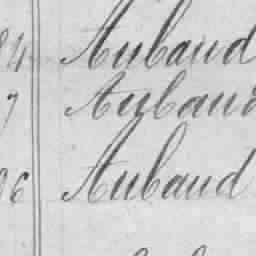 84 Aubaud
7 Aubaud
96 Aubaud